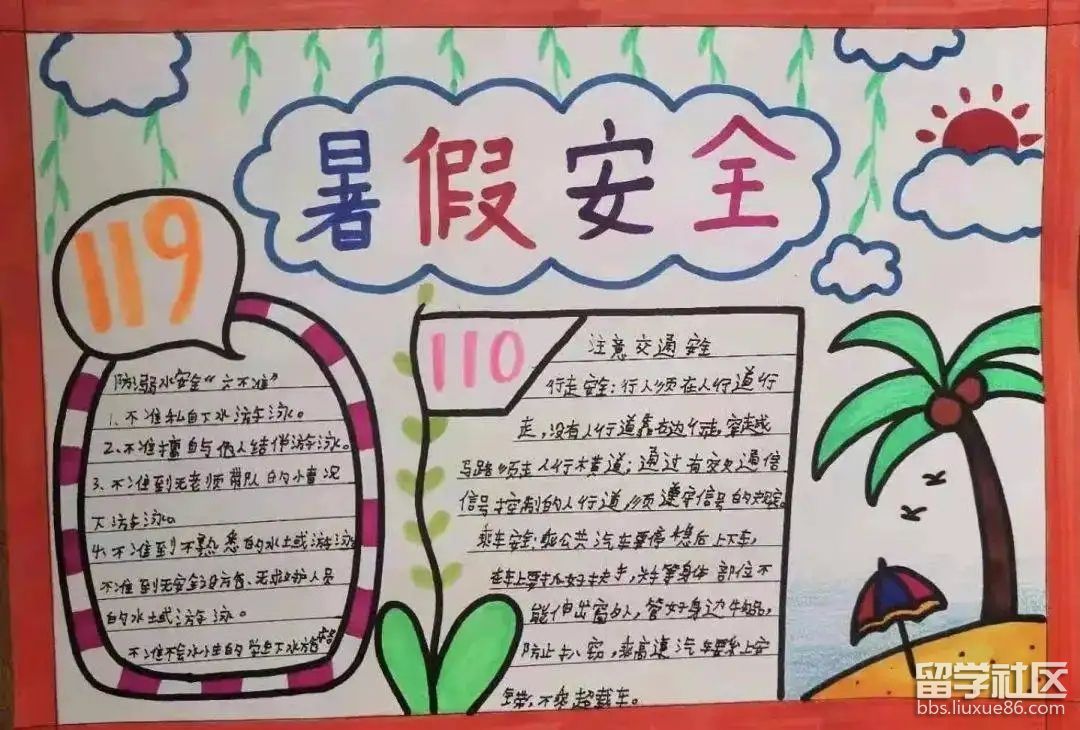 暑假安全
119
防溺水安全“六不准”
1、不准私自下水游泳。
2、不准擅自与他人结伴游泳。
3、不准到无老师带队的小情况
下游泳。
4、不准到不熟悉的水土或游泳
不准到无安全设方省、无救护人员
的水土或游泳。
不准不会水小生的学自下水
110
注意交通安全
行走安全：行人须在人行道行
走，没有人行道靠右边行走。穿越
马路须走人行木黄道；通过有交通信
信号控制的人行道，须遵守信号的规定。
乘车安全：乘公共汽车要停稳后上下车，
在车上要扶好，身体部位不
能伸出窗外，管好身边牛物品，
防止扒窃，乘高速汽车要系上安
全带，不乘超载车。
留学社区
bbs.liuxue86.com